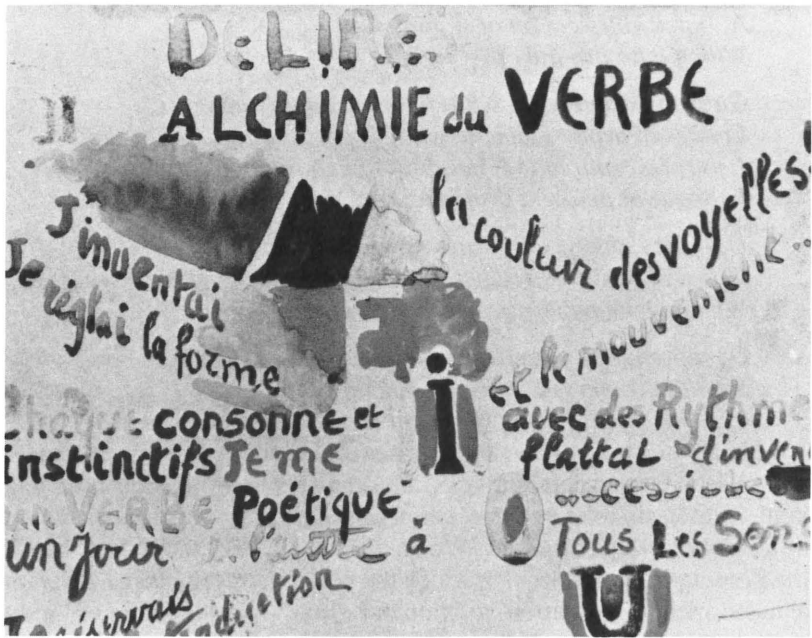 DeLIRE.
II ALCHIMIE du VERBE
J'inventai la couleur des voyelles!
Je réglai la forme et le mouvement...
E
I
Chaque consonne et avec des Rythme
instinctifs Je me flattai d'inven
un VERBE Poétique
O
un jour l'autre à Tous Les Sens
U
Je réservais Traduction